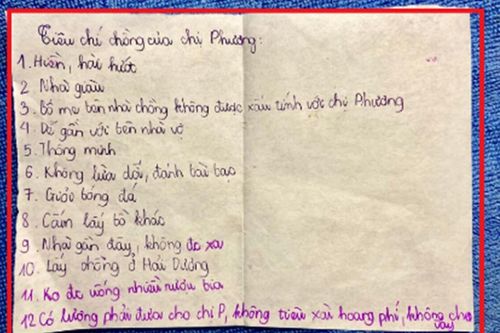 Tiêu chí chồng của chị Phương:
1. Hiền, hài hước
2 Nhà giàu
3. Bố mẹ bên nhà chồng không được xấu tính với chị Phương
4 Dễ gần với bên nhà vợ
5. Thông minh
6. Không lừa dối, đánh bài bạc
7. Giỏi bóng đá
8. Cấm lấy bồ khác
9. Nhà gần đây, không đc xa
10. Lấy chồng ở Hải Dương
11. Ko đc uống nhiều rượu bia
12 Có lương phải đưa cho chị P, không tiêu xài hoang phí, không cho
vay